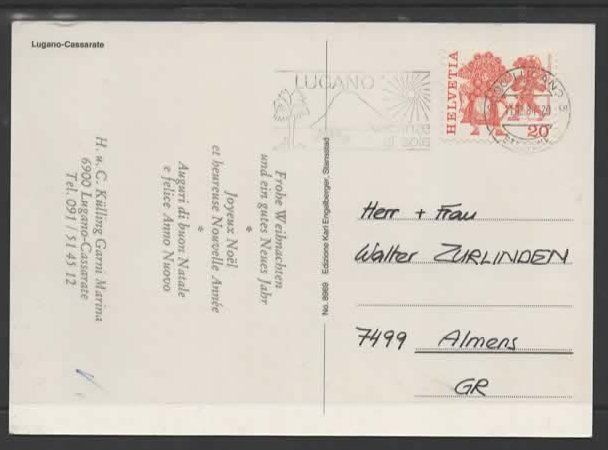 Lugano-Cassarate
Frohe Weihnachten
und ein gutes Neues Jahr
*
Joyeux Noël
et heureuse Nouvelle Année
*
Auguri di buon Natale
e felice Anno Nuovo
H. u. C. Külling Garni Marina
6900 Lugano-Cassarate
Tel. 091 / 51 45 12
No. 8989 Edizione Karl Engelberger, Stansstad
LUGANO
HELVETIA
20
LUGANO
Herr + Frau
Walter ZURLINDEN
7499 Almens
GR